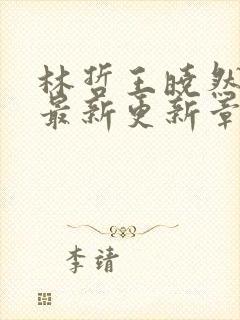 林哲王晓然
最新更新章
李靖